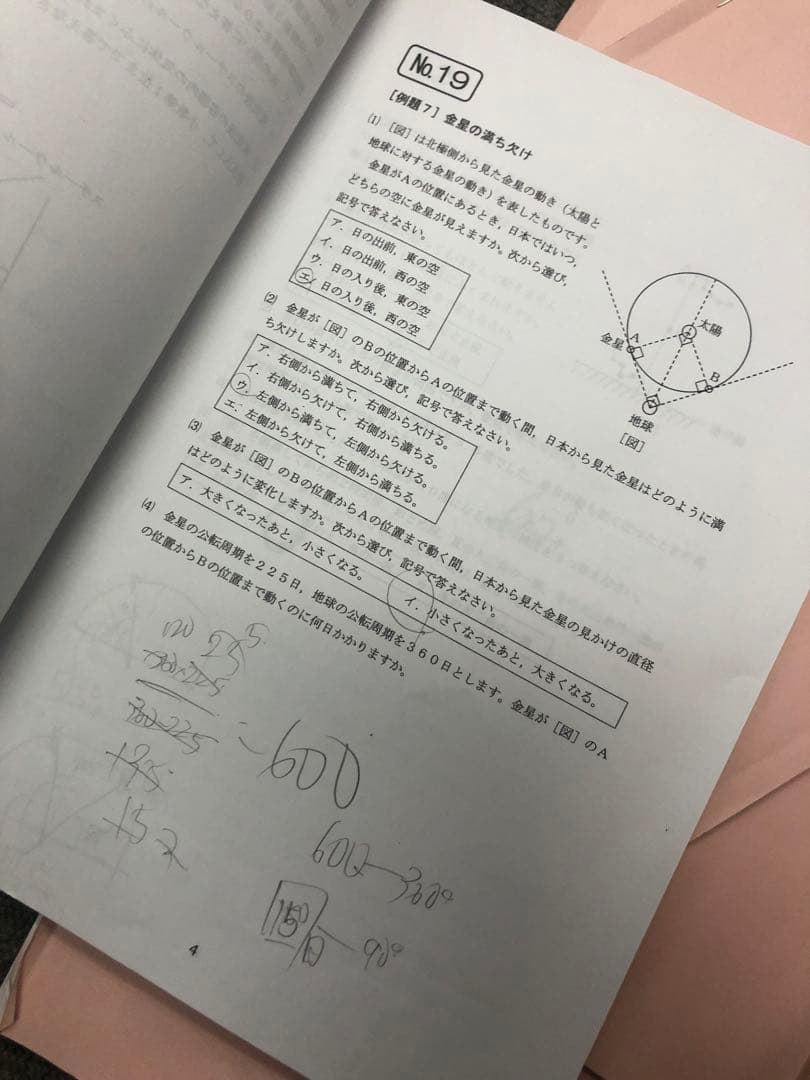 No.19
[例題7] 金星の満ち欠け
(1) [図]は北極側から見た金星の動き(太陽と
地球に対する金星の動き)を表したものです。
金星がAの位置にあるとき，日本ではいつ，
どちらの空に金星が見えますか。次から選び，
記号で答えなさい。
ア．日の出前，東の空
イ．日の出前，西の空
ウ．日の入り後，東の空
エ．日の入り後，西の空
太陽
金星
A
B
地球
[図]
(2) 金星が[図]のBの位置からAの位置まで動く間，日本から見た金星はどのように満
ち欠けしますか。次から選び，記号で答えなさい。
ア．右側から満ちて，右側から欠ける。
イ．右側から欠けて，右側から満ちる。
ウ．左側から満ちて，左側から欠ける。
エ．左側から欠けて，左側から満ちる。
(3) 金星が[図]のBの位置からAの位置まで動く間，日本から見た金星の見かけの直径
はどのように変化しますか。次から選び，記号で答えなさい。
ア．大きくなったあと，小さくなる。
イ．小さくなったあと，大きくなる。
(4) 金星の公転周期を225日，地球の公転周期を360日とします。金星が[図]のA
の位置からBの位置まで動くのに何日かかりますか。
120
= 600
360-225
15
600 — 360°
150日 — 90°
4